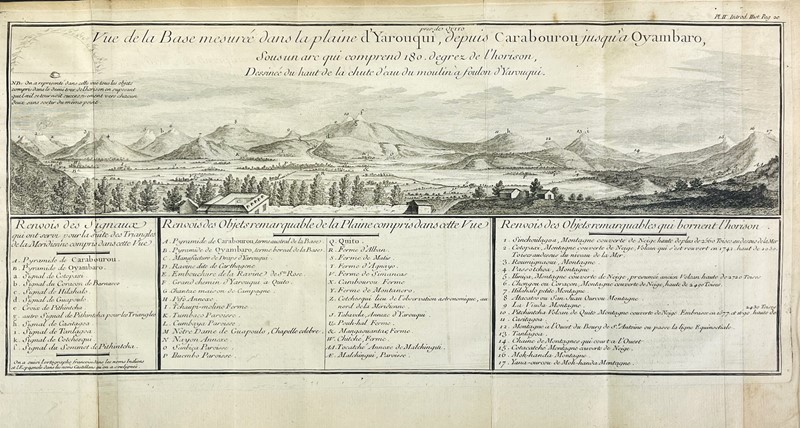 Pl. II. Introd. Hist. Pag. 20.
Vue de la Base mesurée dans la plaine d'Yarouqui, près de Quito, depuis Carabourou jusqu'a Oyambaro,
Sous un arc qui comprend 180 degrez de l'horison,
Dessinée du haut de la chute d'eau du moulin à foulon d'Yarouqui.
NB. On a representé dans cette vue tous les objets
compris dans le demi tour de l'horison en suposant
que l'œil se tournoit successivement vers chacun
deux sans sortir du même point
Renvois des Signaux
qui ont servi pour la suite des Triangles
de la Meridienne compris dans cette Vüe
A. Pyramide de Carabourou.
B. Pyramide de Oyambaro.
Signal de Cotopaxi
Signal du Coraçon de Barnuevo
Signal de
Signal de Guapoulo
Croix de Pitchintcha
autre Signal de Pitchintcha pour les Triangles
Signal de
Signal de Tanlagoa
Signal de Cotchesqui
Signal du Sommet de Pitchincha
On a suivi l'ortographe francoise dans les noms Indiens
et l'Espagnole dans les noms Castillans qu'on a soulignés
Renvois des Objets remarquable de la Plaine compris dans cette Vue
A. Pyramide de Carabourou, terme austral de la Base
B. Pyramide de Oyambaro, terme boreal de la Base
C. Manufacture de Draps d'Yarouqui
D. Ravine dite de Carthagene
E. Embouchure de la Ravine de Ste. Rose
F. Grand chemin d'Yarouqui a Quito
G. Chateau maison de Campagne
H. Pifo Annexe
I. Tchaupi-molino Ferme
K. Tumbaco Paroisse
L. Cumbaya Paroisse
M. Nôtre Dame de Guapoulo, Chapelle celebre
N. Nayon Annexe
O. Paroisse
P. Paroisse
Q. Quito
R. Ferme d'Alban
S. Ferme de Matis
T. Ferme d'Aguayo
V. Ferme de Granacas
X. Carabourou Ferme
Y. Ferme de Montanero
Z. Cotchesqui lieu de l'observation astronomique, au
nord de la Meridienne
Annexe d'Yarouqui
Ferme
Ferme
Ferme
Annexe de Malchingui
Æ. Malchingui, Paroisse
Renvois des Objets remarquables qui bornent l'horison
1. Sinchoulagoa, Montagne couverte de Neige haute de plus de 2560 Toises au dessus de la Mer
2. Cotopaxi, Montagne couverte de Neige, Volcan qui s'est rouvert en 1742, haut de
Toises au dessus du niveau de la Mer
3. Montagne
4. Passotchoa, Montagne
5. Montagne couverte de Neige, presumée ancien Volcan haute de 2720 Toises
6. Chonçon ou Coraçon, Montagne couverte de Neige, haute de 2470 Toises
7. petite Montagne
8. Atacatzo ou San Juan Ourcou Montagne
9. La Viuda Montagne
10. Pitchintcha Volcan de Quito Montagne couverte de Neige Embrasée en 1577 et haute de 2430 Toises
11. Cacitagoa
12. Montagne a l'Ouest du Bourg de St. Antoine ou passe la ligne Equinoctiale.
13. Tanlagoa
14. Chaine de Montagnes qui court a L'Ouest
15. Cotacatche Montagne couverte de Neige
16. Moh-handa Montagne
17. Yana-ourcou de Moh-handa Montagne